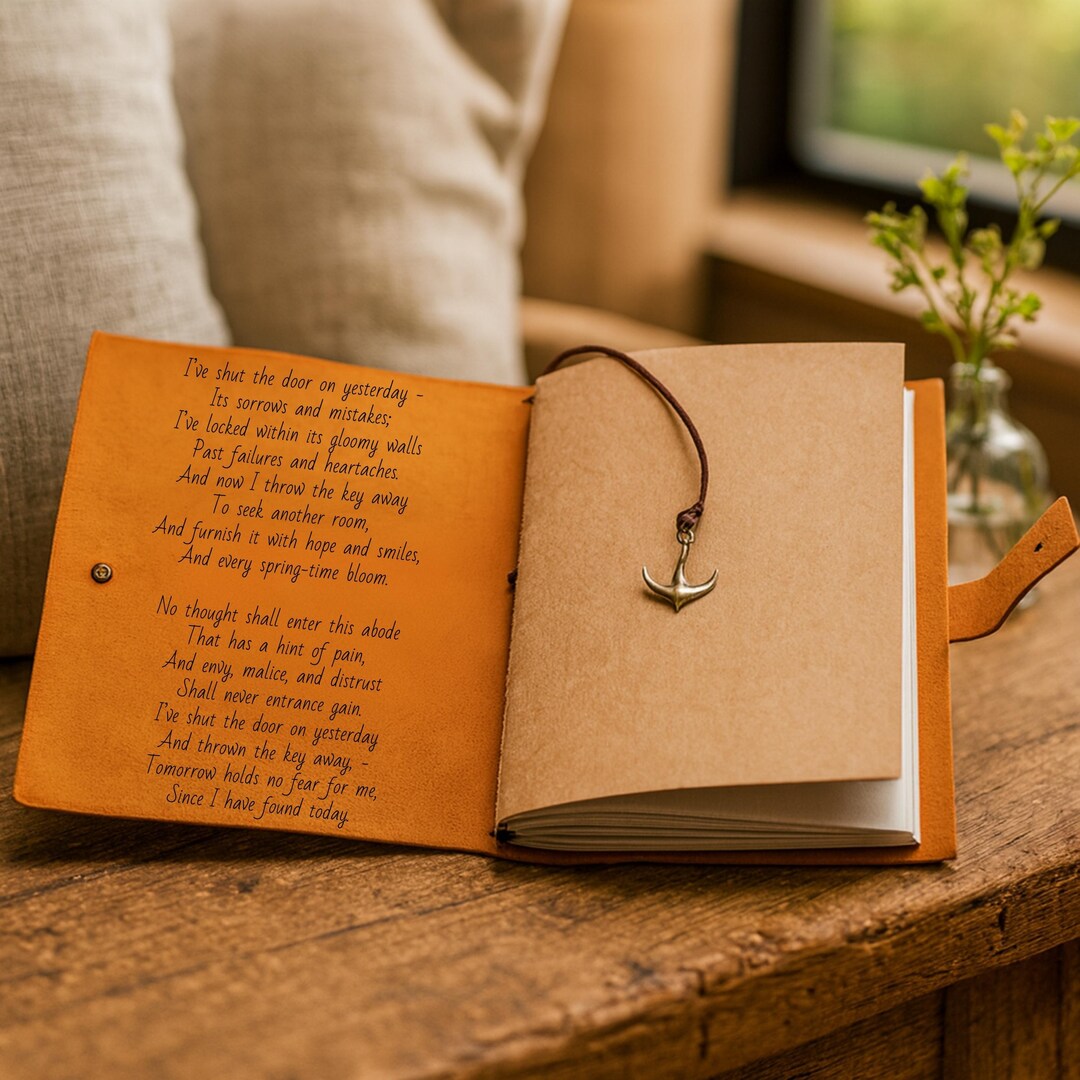 I've shut the door on yesterday -
Its sorrows and mistakes;
I've locked within its gloomy walls
Past failures and heartaches.
And now I throw the key away
To seek another room,
And furnish it with hope and smiles,
And every spring-time bloom.
No thought shall enter this abode
That has a hint of pain,
And envy, malice, and distrust
Shall never entrance gain.
I've shut the door on yesterday
And thrown the key away, -
Tomorrow holds no fear for me,
Since I have found today.